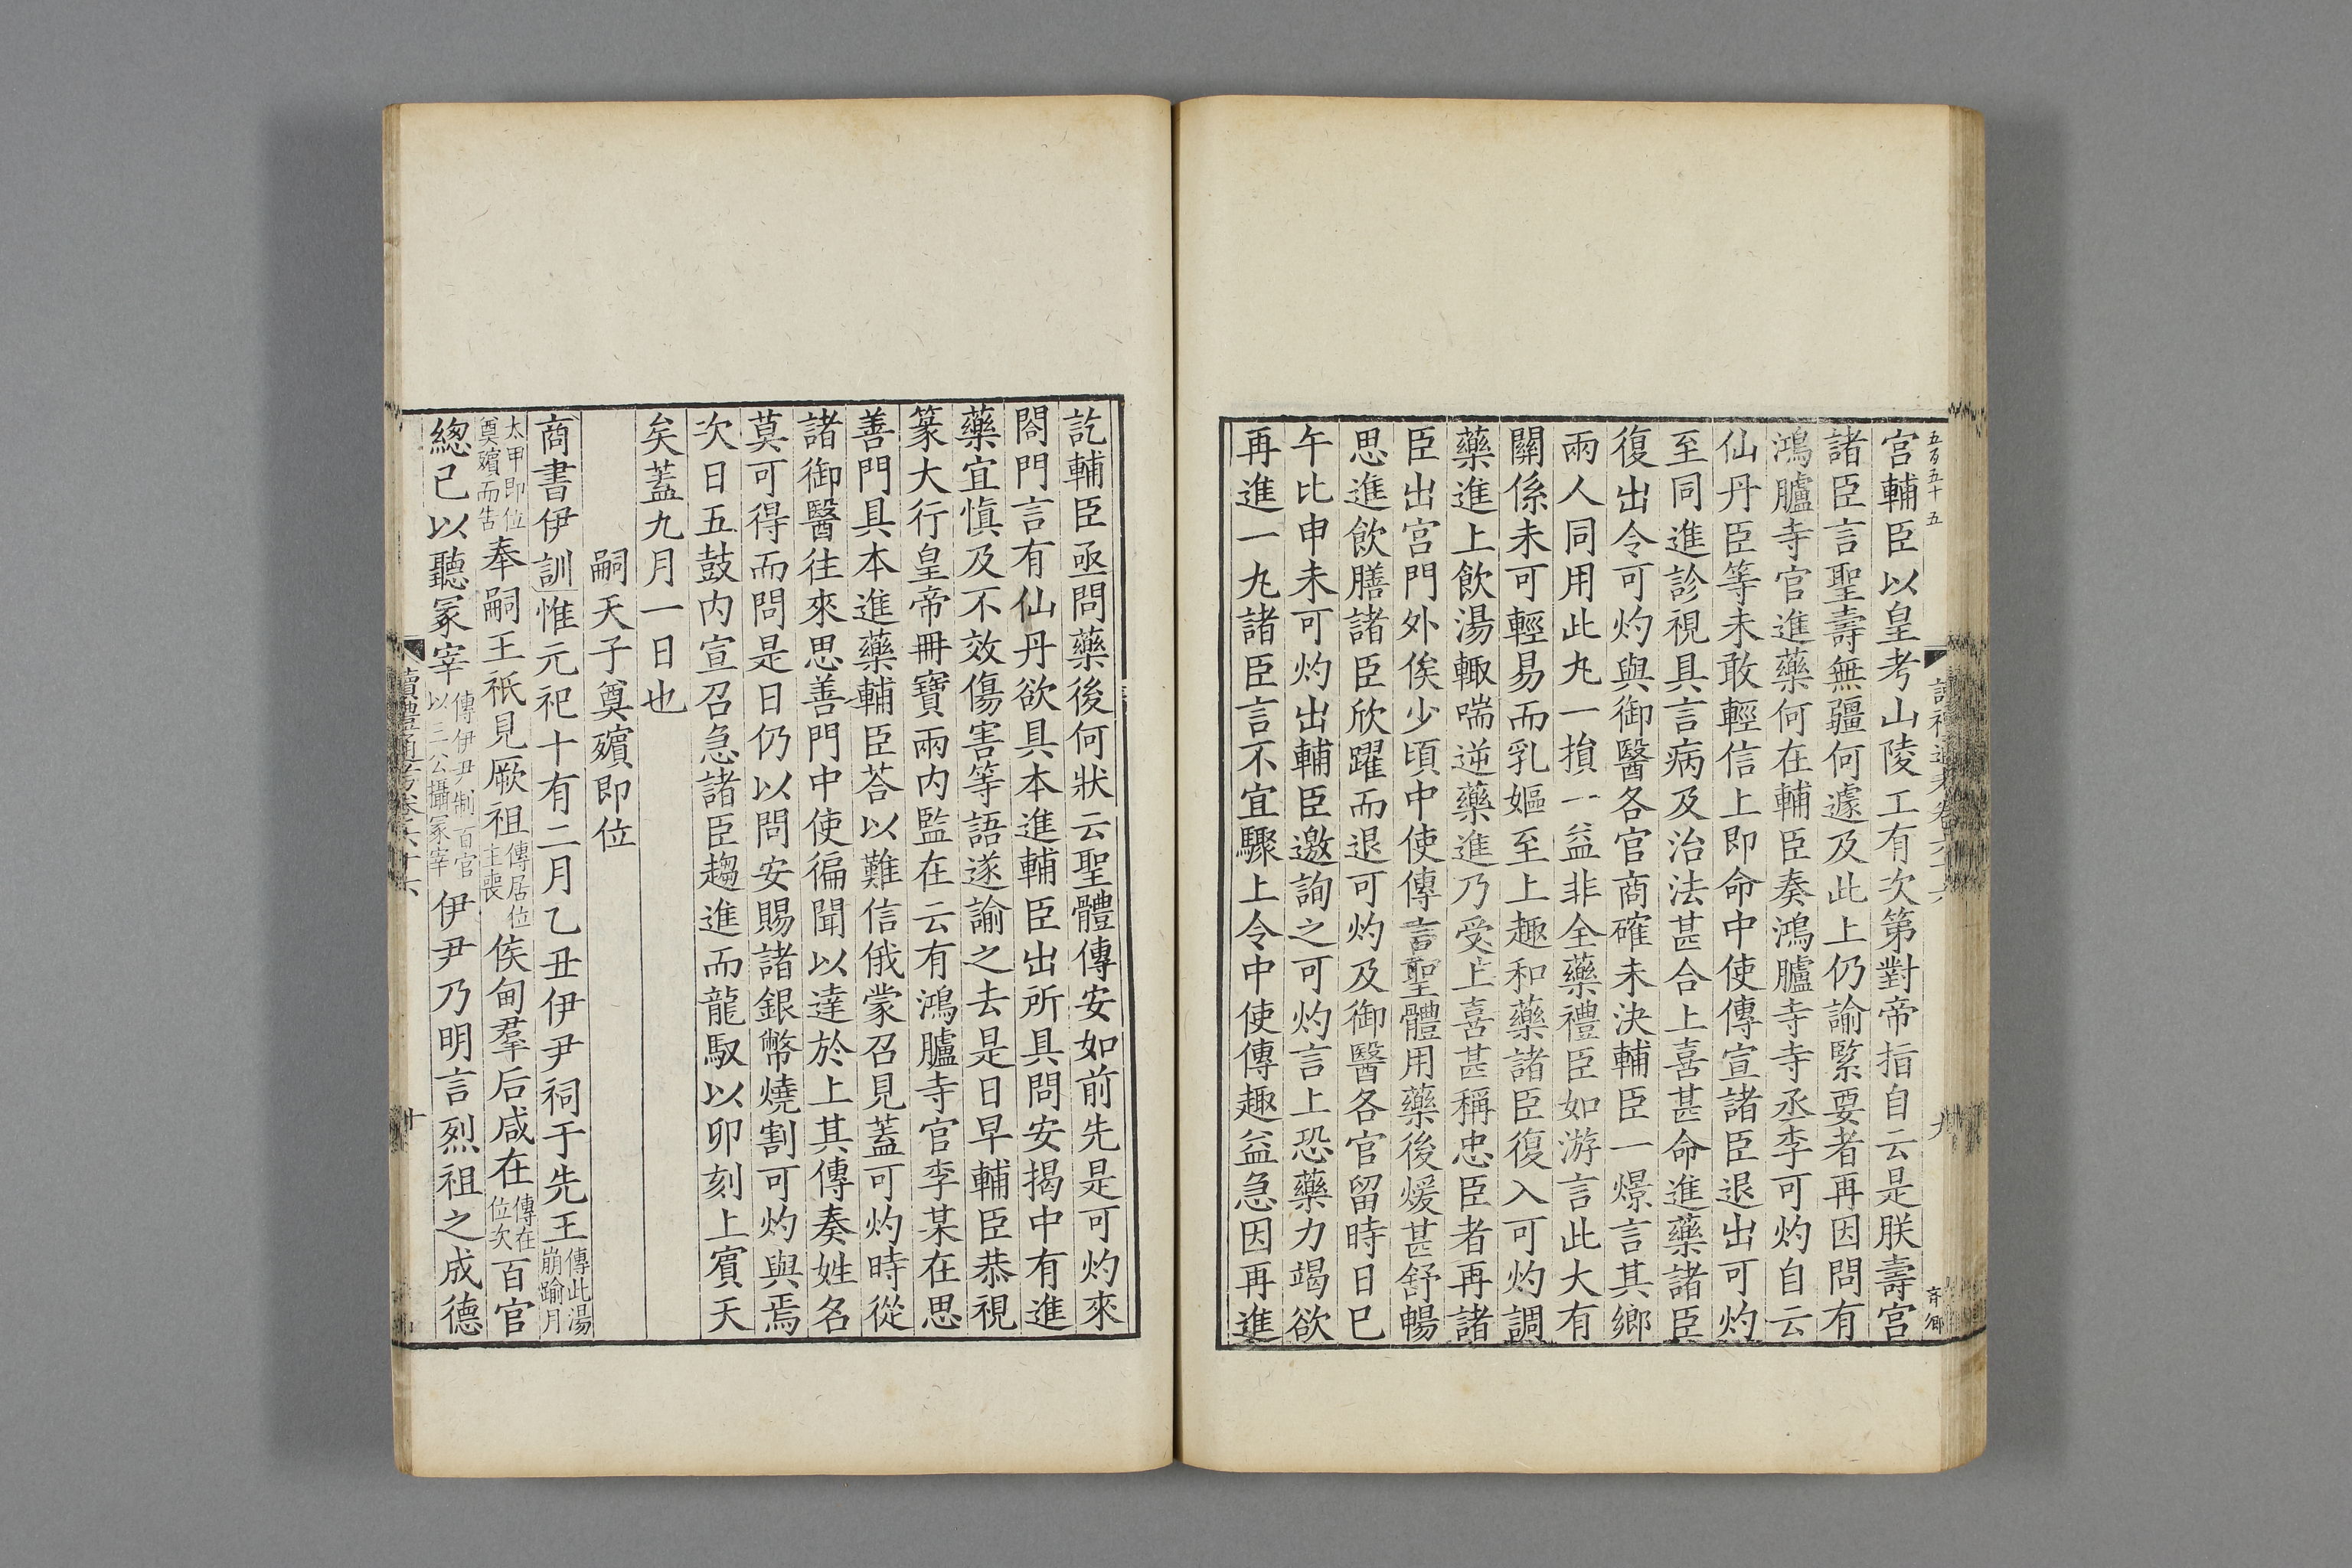 五百五十五
宮輔臣以皇考山陵工有次第對帝指自云是朕壽宮
諸臣言聖壽無疆何遽及此上仍諭緊要者再因問有
鴻臚寺官進藥何在輔臣奏鴻臚寺寺丞李可灼自云
仙丹臣等未敢輕信上即命中使傳宣諸臣退出可灼
至同進診視具言病及治法甚合上喜甚命進藥諸臣
復出令可灼與御醫各官商確未決輔臣一燝言其鄉
兩人同用此丸一損一益非全藥禮臣如游言此大有
關係未可輕易而乳嫗至上趣和藥諸臣復入可灼調
藥進上飲湯輒喘逆藥進乃受上喜甚稱忠臣者再諸
臣出宮門外俟少頃中使傳言聖體用藥後煖甚舒暢
思進飲膳諸臣欣躍而退可灼及御醫各官留時日巳
午比申未可灼出輔臣邀詢之可灼言上恐藥力竭欲
再進一丸諸臣言不宜驟上令中使傳趣益急因再進
訖輔臣亟問藥後何狀云聖體傳安如前先是可灼來
閤門言有仙丹欲具本進輔臣出所具問安揭中有進
藥宜慎及不效傷害等語遂諭之去是日早輔臣恭視
篆大行皇帝冊寶兩內監在云有鴻臚寺官李某在思
善門具本進藥輔臣荅以難信俄蒙召見蓋可灼時從
諸御醫往來思善門中使徧聞以達於上其傳奏姓名
莫可得而問是日仍以問安賜諸銀幣燒割可灼與焉
次日五鼓內宣召急諸臣趨進而龍馭以卯刻上賓天
矣蓋九月一日也
嗣天子奠殯即位
商書伊訓惟元祀十有二月乙丑伊尹祠于先王傳此湯崩踰月
太甲即位奠殯而告奉嗣王祇見厥祖傳居位主喪侯甸羣后咸在傳在位次百官
總己以聽冢宰傳伊尹制百官以三公攝冢宰伊尹乃明言烈祖之成德
讀禮通考卷六十六